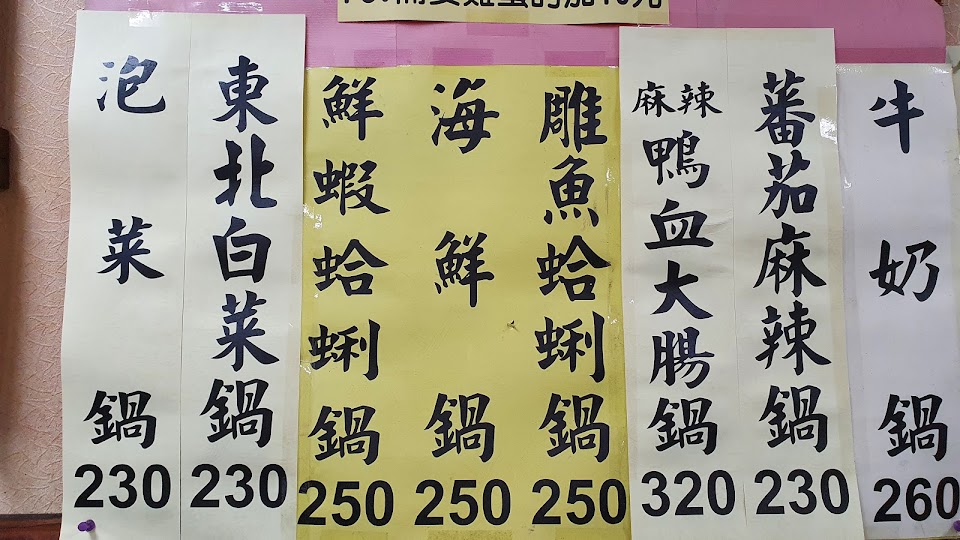 牛奶鍋
260
蕃茄麻辣鍋
230
麻辣鴨血大腸鍋
320
雕魚蛤蜊鍋
250
海鮮鍋
250
鮮蝦蛤蜊鍋
250
東北白菜鍋
230
泡菜鍋
230